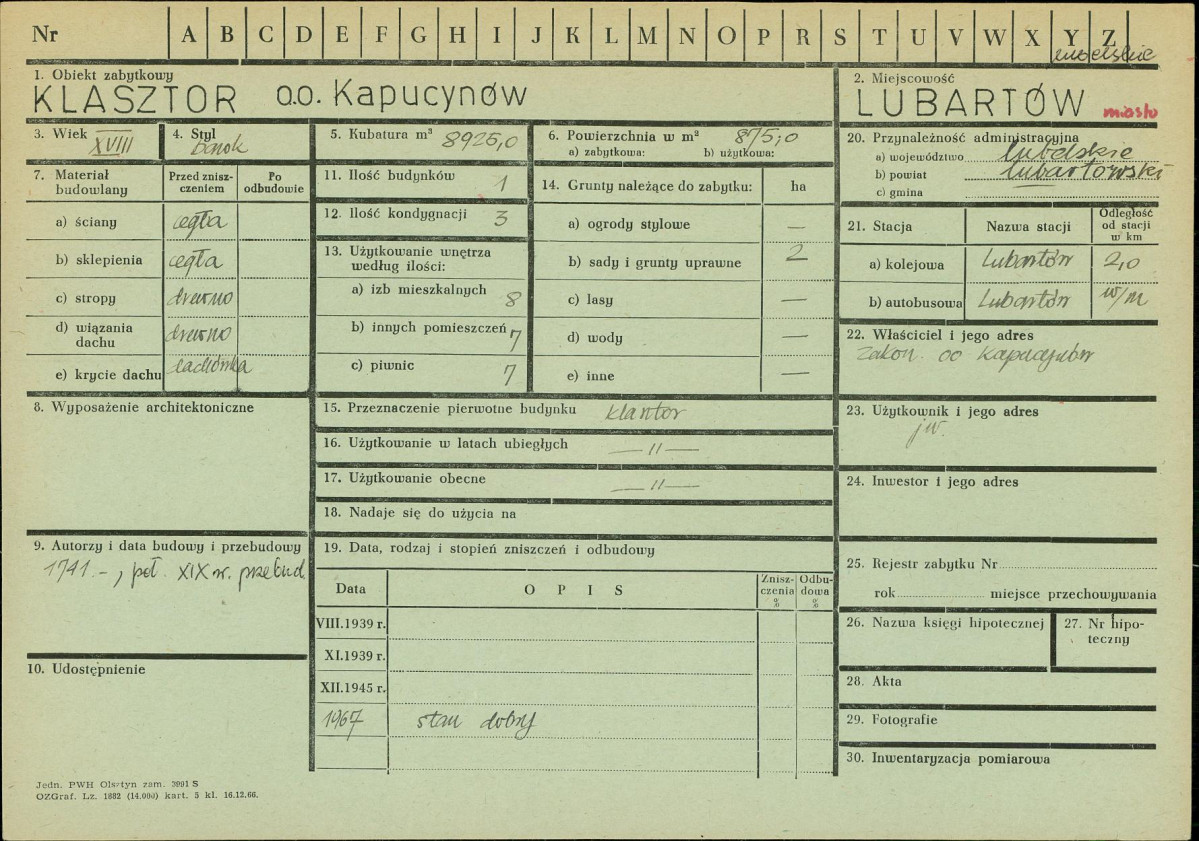 Nr A B C D E F G H I J K L M N O P R S T U V W X Y Z
lubelskie
1. Obiekt zabytkowy
KLASZTOR o.o. Kapucynów
2. Miejscowość
LUBARTÓW miasto
3. Wiek
XVIII
4. Styl
barok
5. Kubatura m³ 8925,0
6. Powierzchnia w m² 875,0
a) zabytkowa: b) użytkowa:
7. Materiał budowlany
Przed znisz-
czeniem
Po
odbudowie
a) ściany cegła
b) sklepienia cegła
c) stropy drewno
d) wiązania
dachu drewno
e) krycie dachu dachówka
8. Wyposażenie architektoniczne
9. Autorzy i data budowy i przebudowy
1741.-, poł. XIX w. przebud.
10. Udostępnienie
11. Ilość budynków 1
12. Ilość kondygnacji 3
13. Użytkowanie wnętrza
według ilości:
a) izb mieszkalnych 8
b) innych pomieszczeń 7
c) piwnic 7
14. Grunty należące do zabytku: ha
a) ogrody stylowe —
b) sady i grunty uprawne 2
c) lasy —
d) wody —
e) inne —
15. Przeznaczenie pierwotne budynku klasztor
16. Użytkowanie w latach ubiegłych — 〃 —
17. Użytkowanie obecne — 〃 —
18. Nadaje się do użycia na
19. Data, rodzaj i stopień zniszczeń i odbudowy
Data O P I S Znisz-
czenia
% Odbu-
dowa
%
VIII.1939 r.
XI.1939 r.
XII.1945 r.
1967 stan dobry
20. Przynależność administracyjna
a) województwo lubelskie
b) powiat lubartowski
c) gmina
21. Stacja Nazwa stacji Odległość
od stacji
w km
a) kolejowa Lubartów 2,0
b) autobusowa Lubartów w/m
22. Właściciel i jego adres
zakon oo Kapucynów
23. Użytkownik i jego adres
jw.
24. Inwestor i jego adres
25. Rejestr zabytku Nr
rok miejsce przechowywania
26. Nazwa księgi hipotecznej
27. Nr hipo-
teczny
28. Akta
29. Fotografie
30. Inwentaryzacja pomiarowa
Jedn. PWH Olsztyn zam. 3991 S
OZGraf. Lz. 1882 (14.000) kart. 5 kl. 16.12.66.